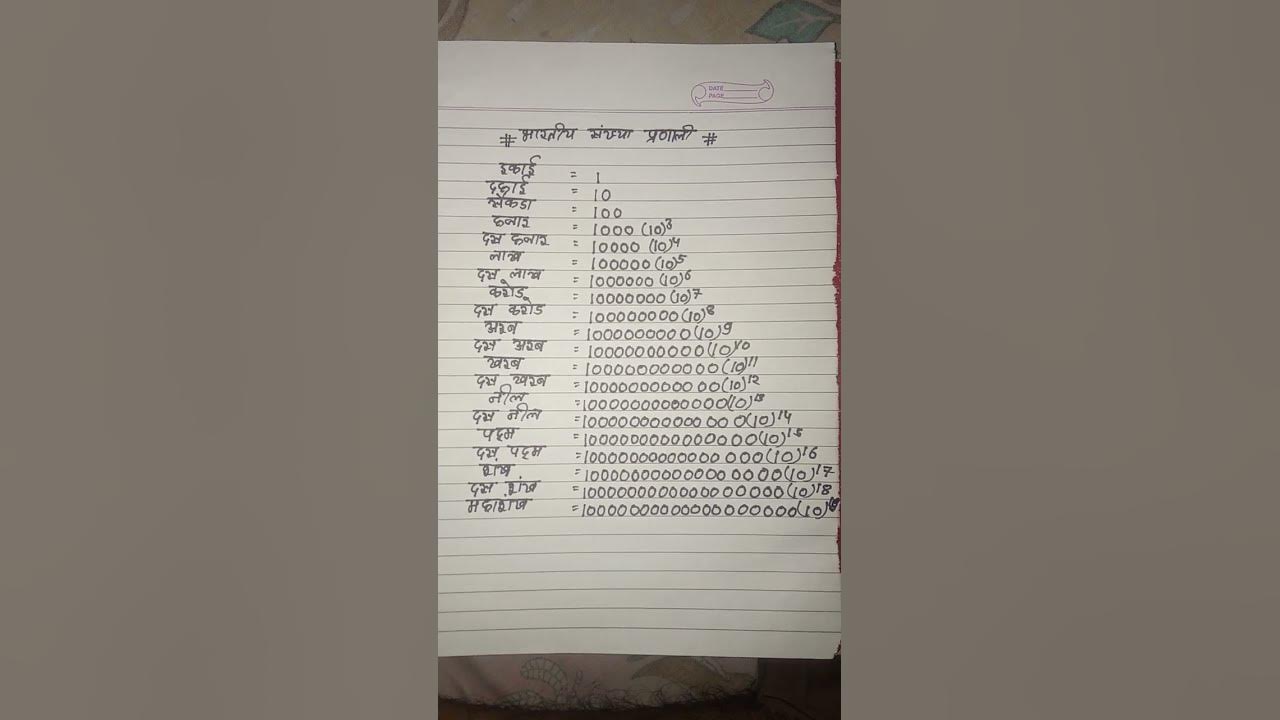 DATE
PAGE
# भारतीय संख्या प्रणाली #
इकाई = 1
दहाई = 10
सैकडा = 100
हजार = 1000 (10)³
दस हजार = 10000 (10)⁴
लाख = 100000 (10)⁵
दस लाख = 1000000 (10)⁶
करोड = 10000000 (10)⁷
दस करोड = 100000000 (10)⁸
अरब = 1000000000 (10)⁹
दस अरब = 10000000000 (10)¹⁰
खरब = 100000000000 (10)¹¹
दस खरब = 1000000000000 (10)¹²
नील = 10000000000000 (10)¹³
दस नील = 100000000000000 (10)¹⁴
पद्म = 1000000000000000 (10)¹⁵
दस पद्म = 10000000000000000 (10)¹⁶
शंख = 100000000000000000 (10)¹⁷
दस शंख = 1000000000000000000 (10)¹⁸
महाशंख = 10000000000000000000 (10)¹⁹